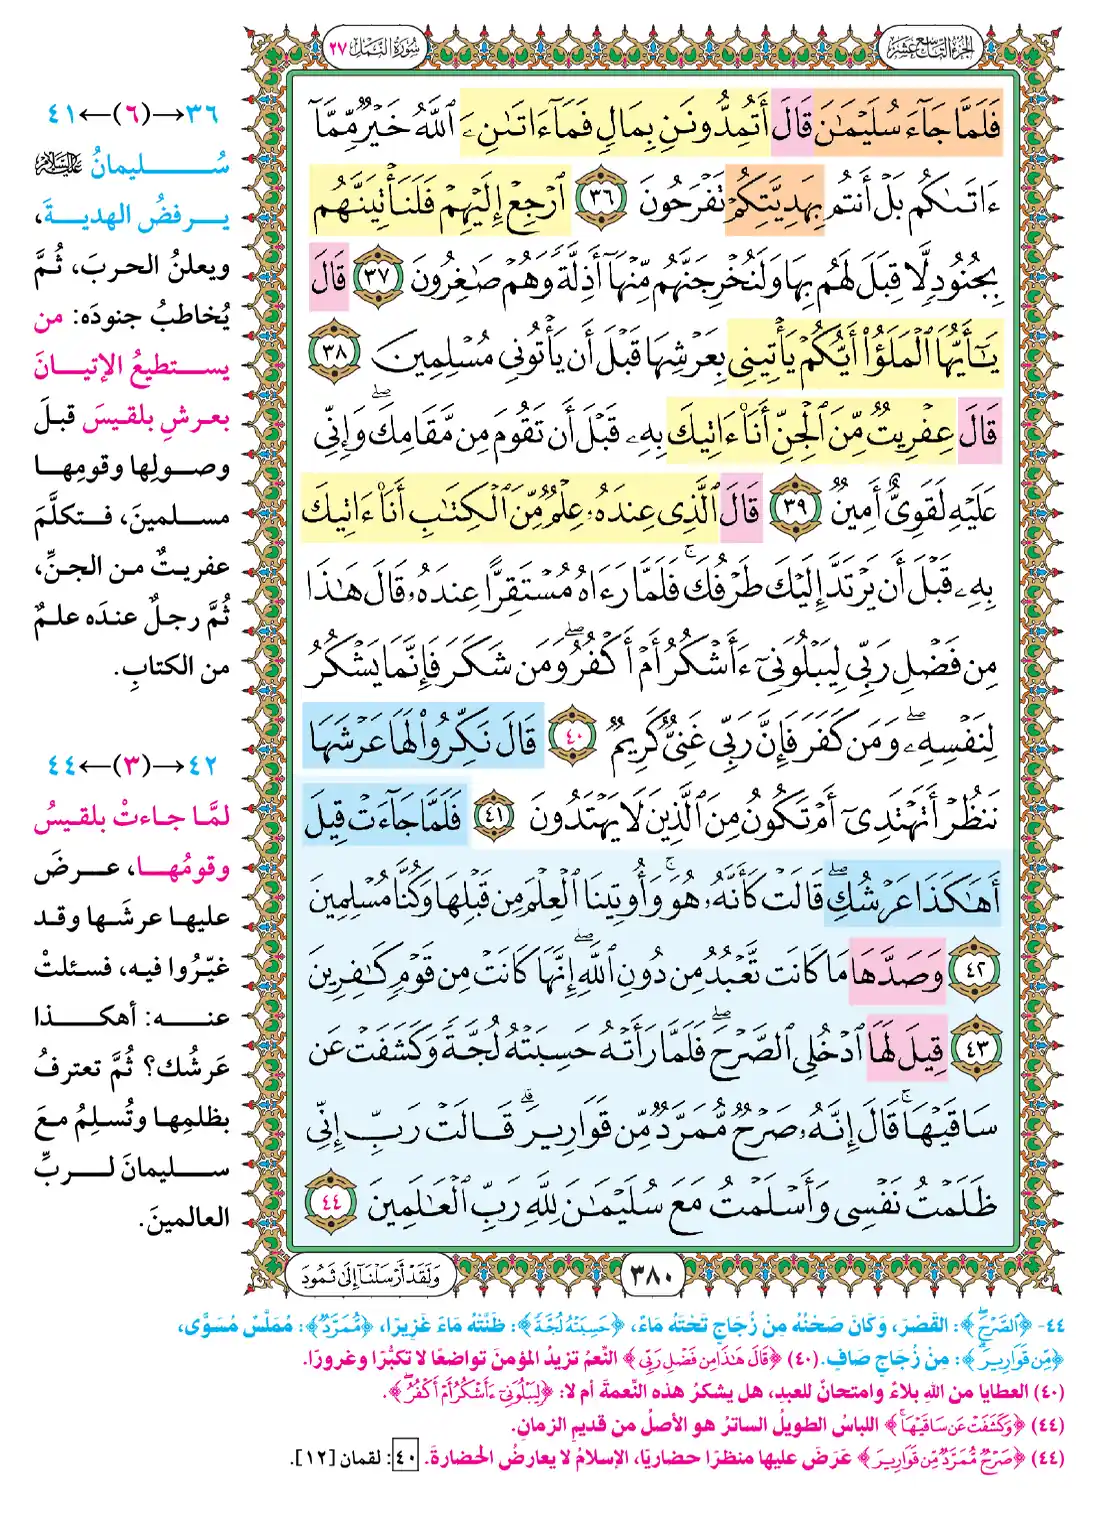 الجزء التاسع عشر
سورة النمل ٢٧
فَلَمَّا جَآءَ سُلَيْمَٰنَ قَالَ أَتُمِدُّونَنِ بِمَالٍ فَمَآ ءَاتَىٰنِۦَ ٱللَّهُ خَيْرٌ مِّمَّآ
ءَاتَىٰكُم بَلْ أَنتُم بِهَدِيَّتِكُمْ تَفْرَحُونَ ٣٦ ٱرْجِعْ إِلَيْهِمْ فَلَنَأْتِيَنَّهُم
بِجُنُودٍ لَّا قِبَلَ لَهُم بِهَا وَلَنُخْرِجَنَّهُم مِّنْهَآ أَذِلَّةً وَهُمْ صَٰغِرُونَ ٣٧ قَالَ
يَٰٓأَيُّهَا ٱلْمَلَؤُا۟ أَيُّكُمْ يَأْتِينِى بِعَرْشِهَا قَبْلَ أَن يَأْتُونِى مُسْلِمِينَ ٣٨
قَالَ عِفْرِيتٌ مِّنَ ٱلْجِنِّ أَنَا۠ ءَاتِيكَ بِهِۦ قَبْلَ أَن تَقُومَ مِن مَّقَامِكَ ۖ وَإِنِّى
عَلَيْهِ لَقَوِىٌّ أَمِينٌ ٣٩ قَالَ ٱلَّذِى عِندَهُۥ عِلْمٌ مِّنَ ٱلْكِتَٰبِ أَنَا۠ ءَاتِيكَ
بِهِۦ قَبْلَ أَن يَرْتَدَّ إِلَيْكَ طَرْفُكَ ۚ فَلَمَّا رَءَاهُ مُسْتَقِرًّا عِندَهُۥ قَالَ هَٰذَا
مِن فَضْلِ رَبِّى لِيَبْلُوَنِىٓ ءَأَشْكُرُ أَمْ أَكْفُرُ ۖ وَمَن شَكَرَ فَإِنَّمَا يَشْكُرُ
لِنَفْسِهِۦ ۖ وَمَن كَفَرَ فَإِنَّ رَبِّى غَنِىٌّ كَرِيمٌ ٤٠ قَالَ نَكِّرُوا۟ لَهَا عَرْشَهَا
نَنظُرْ أَتَهْتَدِىٓ أَمْ تَكُونُ مِنَ ٱلَّذِينَ لَا يَهْتَدُونَ ٤١ فَلَمَّا جَآءَتْ قِيلَ
أَهَٰكَذَا عَرْشُكِ ۖ قَالَتْ كَأَنَّهُۥ هُوَ ۚ وَأُوتِينَا ٱلْعِلْمَ مِن قَبْلِهَا وَكُنَّا مُسْلِمِينَ
٤٢ وَصَدَّهَا مَا كَانَت تَّعْبُدُ مِن دُونِ ٱللَّهِ ۖ إِنَّهَا كَانَتْ مِن قَوْمٍ كَٰفِرِينَ
٤٣ قِيلَ لَهَا ٱدْخُلِى ٱلصَّرْحَ ۖ فَلَمَّا رَأَتْهُ حَسِبَتْهُ لُجَّةً وَكَشَفَتْ عَن
سَاقَيْهَا ۚ قَالَ إِنَّهُۥ صَرْحٌ مُّمَرَّدٌ مِّن قَوَارِيرَ ۗ قَالَتْ رَبِّ إِنِّى
ظَلَمْتُ نَفْسِى وَأَسْلَمْتُ مَعَ سُلَيْمَٰنَ لِلَّهِ رَبِّ ٱلْعَٰلَمِينَ ٤٤
٣٨٠
وَلَقَدْ أَرْسَلْنَا إِلَىٰ ثَمُودَ
٣٦→(٦)←٤١
سُليمانُ عليه السلام
يرفضُ الهديةَ،
ويعلنُ الحربَ، ثُمَّ
يُخاطبُ جنودَه: من
يستطيعُ الإتيانَ
بعرشِ بلقيسَ قبلَ
وصولِها وقومِها
مسلمينَ، فتكلَّمَ
عفريتٌ من الجنِّ،
ثُمَّ رجلٌ عندَه علمٌ
من الكتابِ.
٤٢→(٣)←٤٤
لمَّا جاءتْ بلقيسُ
وقومُها، عرضَ
عليها عرشَها وقد
غيّرُوا فيه، فسئلتْ
عنه: أهكذا
عَرشُك؟ ثُمَّ تعترفُ
بظلمِها وتُسلِمُ معَ
سليمانَ لربِّ
العالمينَ.
٤٤- ﴿ٱلصَّرْحَ ۖ﴾: القَصْرَ، وَكَانَ صَحْنُهُ مِنْ زُجَاجٍ تَحْتَهُ مَاءٌ، ﴿حَسِبَتْهُ لُجَّةً﴾: ظَنَّتْهُ مَاءً غَزِيرًا، ﴿مُّمَرَّدٌ﴾: مُمَلَّسٌ مُسَوًّى،
﴿مِّن قَوَارِيرَ﴾: مِنْ زُجَاجٍ صَافٍ. (٤٠) ﴿قَالَ هَٰذَا مِن فَضْلِ رَبِّى﴾ النِّعمُ تزيدُ المؤمنَ تواضعًا لا تكبُّرًا وغرورًا.
(٤٠) العطايا من اللهِ بلاءٌ وامتحانٌ للعبدِ، هل يشكرُ هذه النِّعمةَ أم لا: ﴿لِيَبْلُوَنِىٓ ءَأَشْكُرُ أَمْ أَكْفُرُ ۖ﴾.
(٤٤) ﴿وَكَشَفَتْ عَن سَاقَيْهَا ۚ﴾ اللباسُ الطويلُ الساترُ هو الأصلُ من قديمِ الزمانِ.
(٤٤) ﴿صَرْحٌ مُّمَرَّدٌ مِّن قَوَارِيرَ﴾ عَرَضَ عليها منظرًا حضاريًا، الإسلامُ لا يعارضُ الحضارةَ. ٤٠: لقمان [١٢].